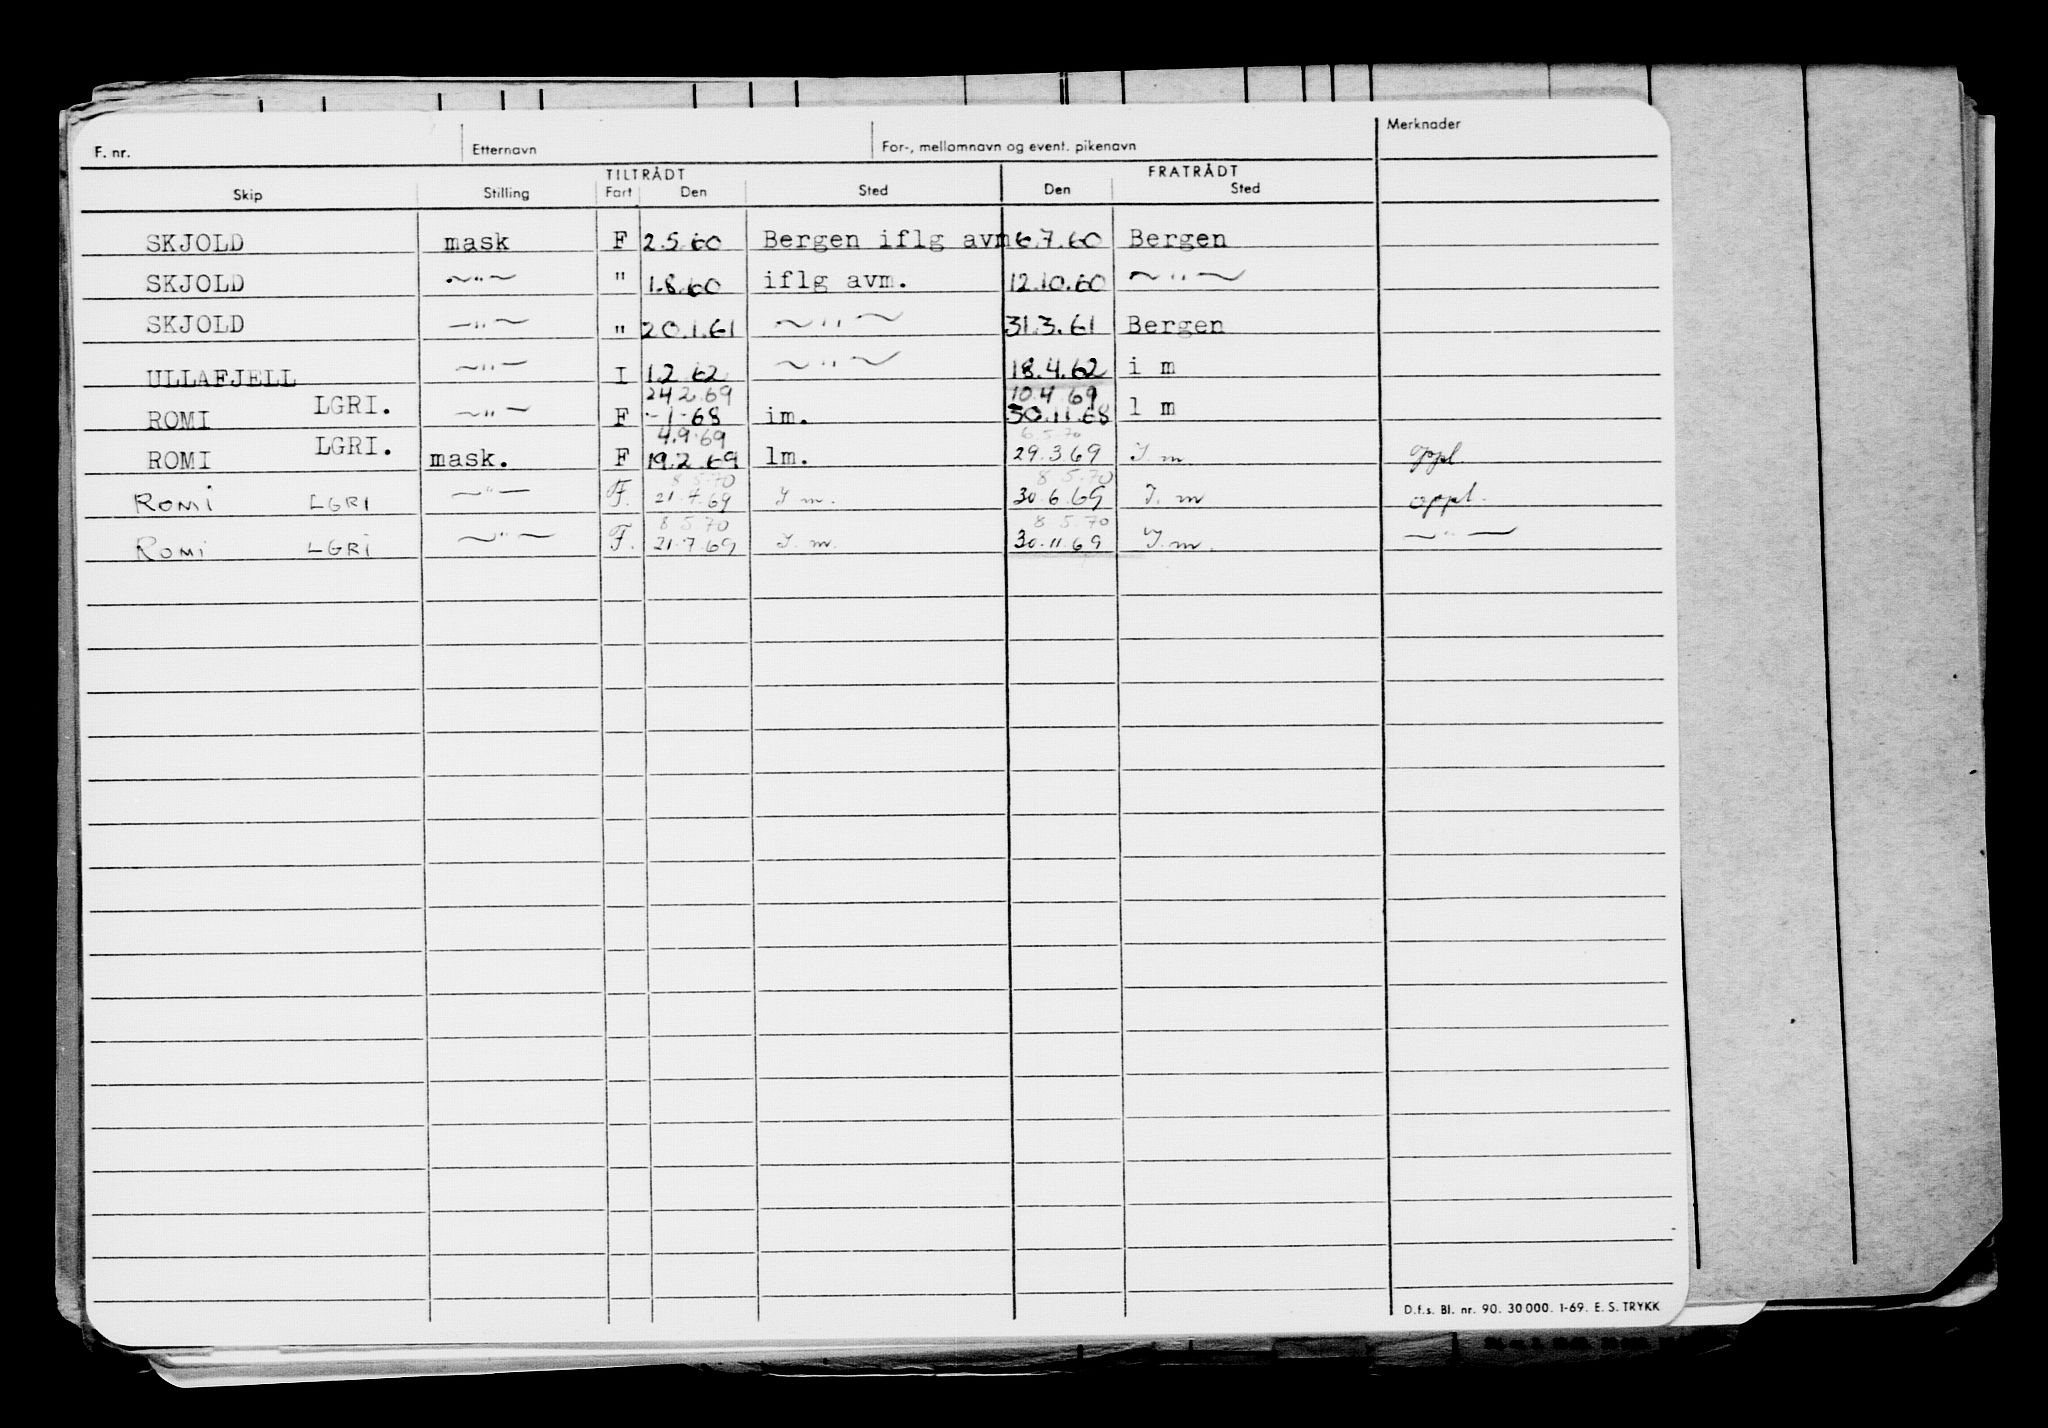 F. nr. Etternavn For-, mellomnavn og event. pikenavn Merknader
TILTRÅDT FRATRÅDT
Skip Stilling Fart Den Sted Den Sted
SKJOLD mask F 2.5.60 Bergen iflg avm 6.7.60 Bergen
SKJOLD ~"~ " 1.8.60 iflg avm. 12.10.60 ~"~
SKJOLD ~"~ " 20.1.61 ~"~ 31.3.61 Bergen
ULLAFJELL ~"~ I 1.2.62 ~"~ 18.4.62 i m
24.2.69 10.4.69
ROMI LGRI. ~"~ F -1-68 im. 30.11.68 l m
4.9.69 6.5.70
ROMI LGRI. mask. F 19.2.69 lm. 29.3.69 I.m oppl.
8 5.70 8 5.70
ROMI LGRI ~"~ F. 21.4.69 I m. 30.6.69 I. m oppl.
8 5 70 8 5 70
ROMI LGRI ~"~ F. 21.7.69 I. m. 30.11.69 I.m. ~"~
D.f.s. Bl. nr. 90. 30 000. 1-69. E. S. TRYKK